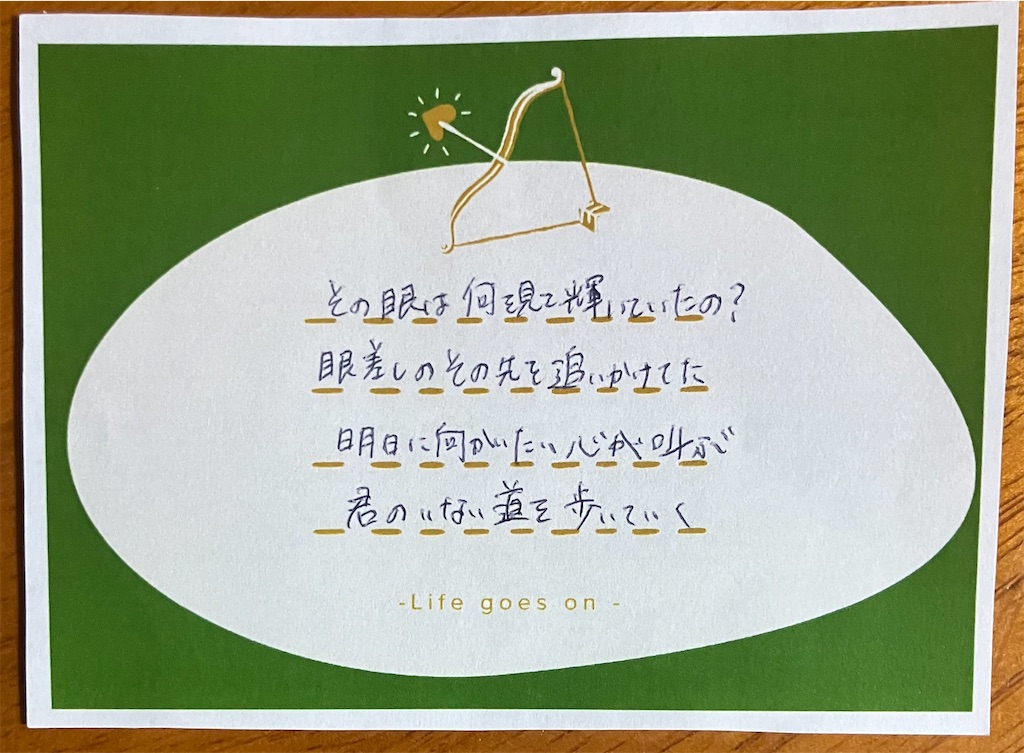 その眼は何を見て輝いていたの?
眼差しのその先を追いかけてた
明日に向かいたい心が叫ぶ
君のいない道を歩いていく
-Life goes on -